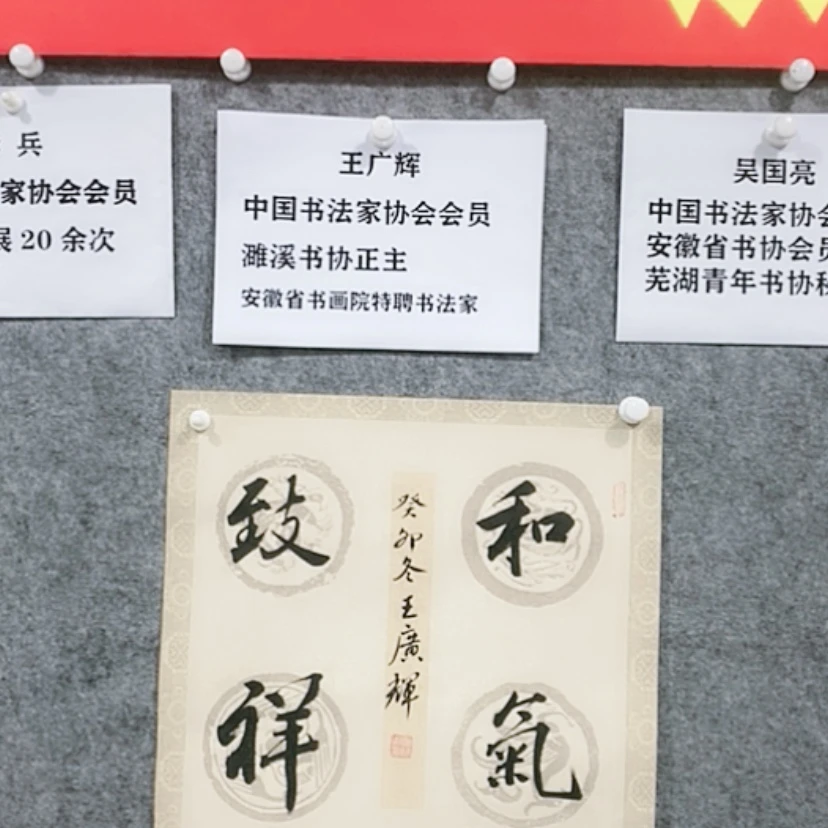 兵
家协会会员
展 20 余次
王广辉
中国书法家协会会员
濉溪书协正主
安徽省书画院特聘书法家
吴国亮
中国书法家协会
安徽省书协会员
芜湖青年书协秘
和
氣
致
祥
癸卯冬王廣輝